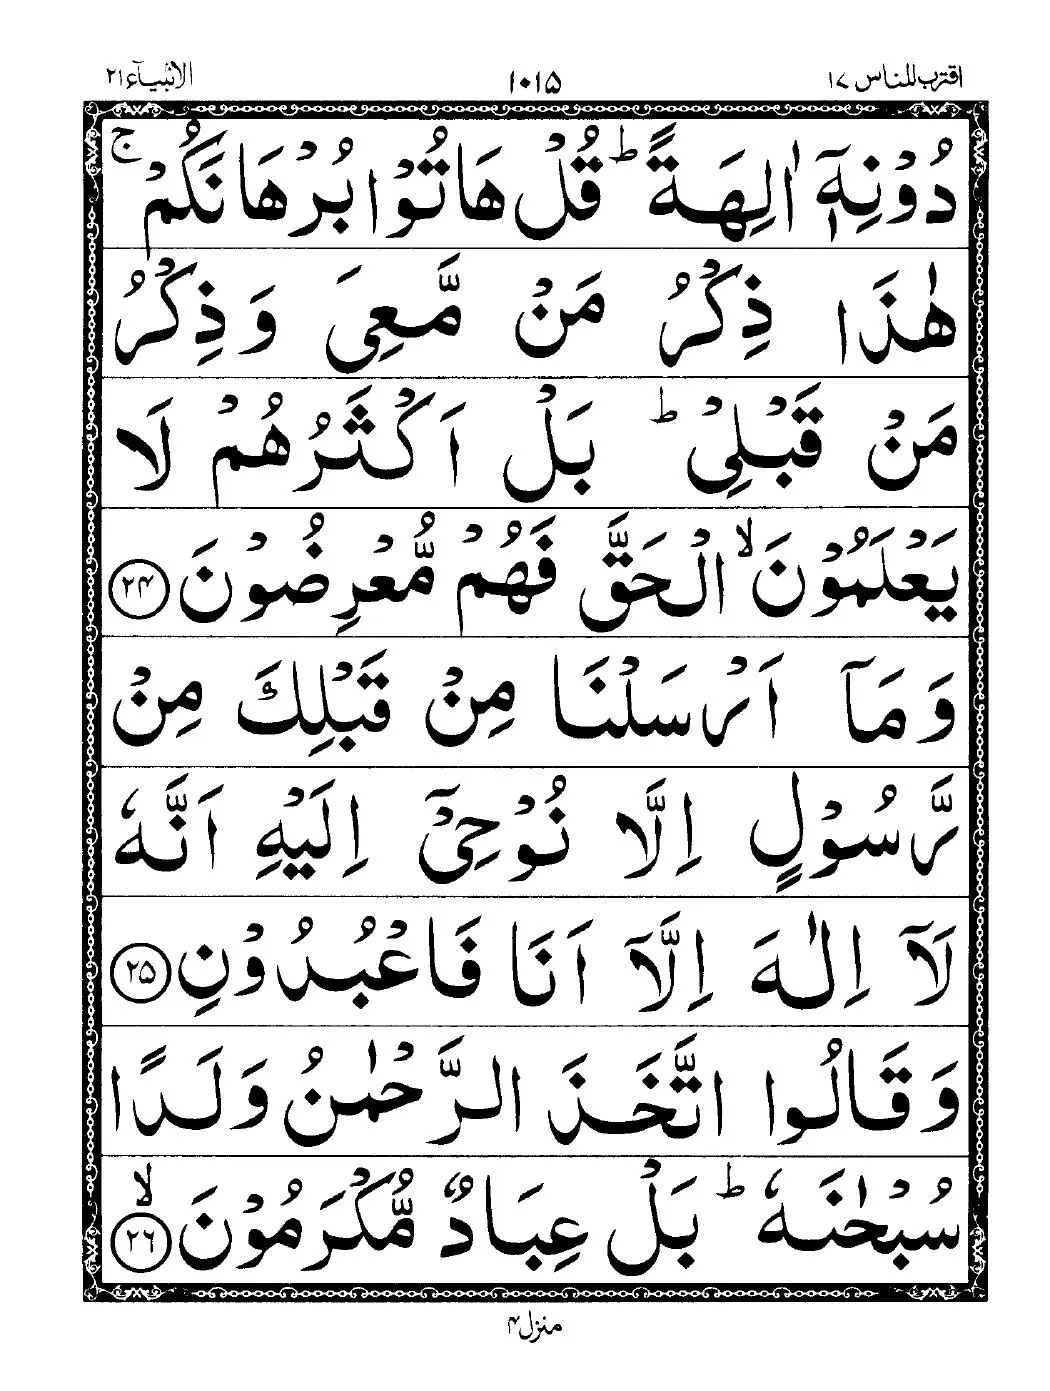 اقترب للناس ١٧ ١٠١٥ الانبیآء ٢١
دُوْنِهٖۤ اٰلِهَةً ؕ قُلْ هَاتُوْا بُرْهَانَكُمْ ۚ
هٰذَا ذِكْرُ مَنْ مَّعِیَ وَذِكْرُ
مَنْ قَبْلِیْ ؕ بَلْ اَكْثَرُهُمْ لَا
یَعْلَمُوْنَ ۙ الْحَقَّ فَهُمْ مُّعْرِضُوْنَ ﴿۲۴﴾
وَمَاۤ اَرْسَلْنَا مِنْ قَبْلِكَ مِنْ
رَّسُوْلٍ اِلَّا نُوْحِیْۤ اِلَیْهِ اَنَّهٗ
لَاۤ اِلٰهَ اِلَّاۤ اَنَا فَاعْبُدُوْنِ ﴿۲۵﴾
وَقَالُوا اتَّخَذَ الرَّحْمٰنُ وَلَدًا
سُبْحٰنَهٗ ؕ بَلْ عِبَادٌ مُّكْرَمُوْنَ ۙ﴿۲۶﴾
منزل ۴